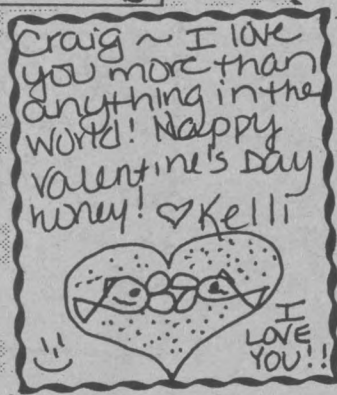 Craig ~ I love
you more than
anything in the
world! Happy
Valentine's Day
honey! ♡ Kelli
I
LOVE
YOU!!